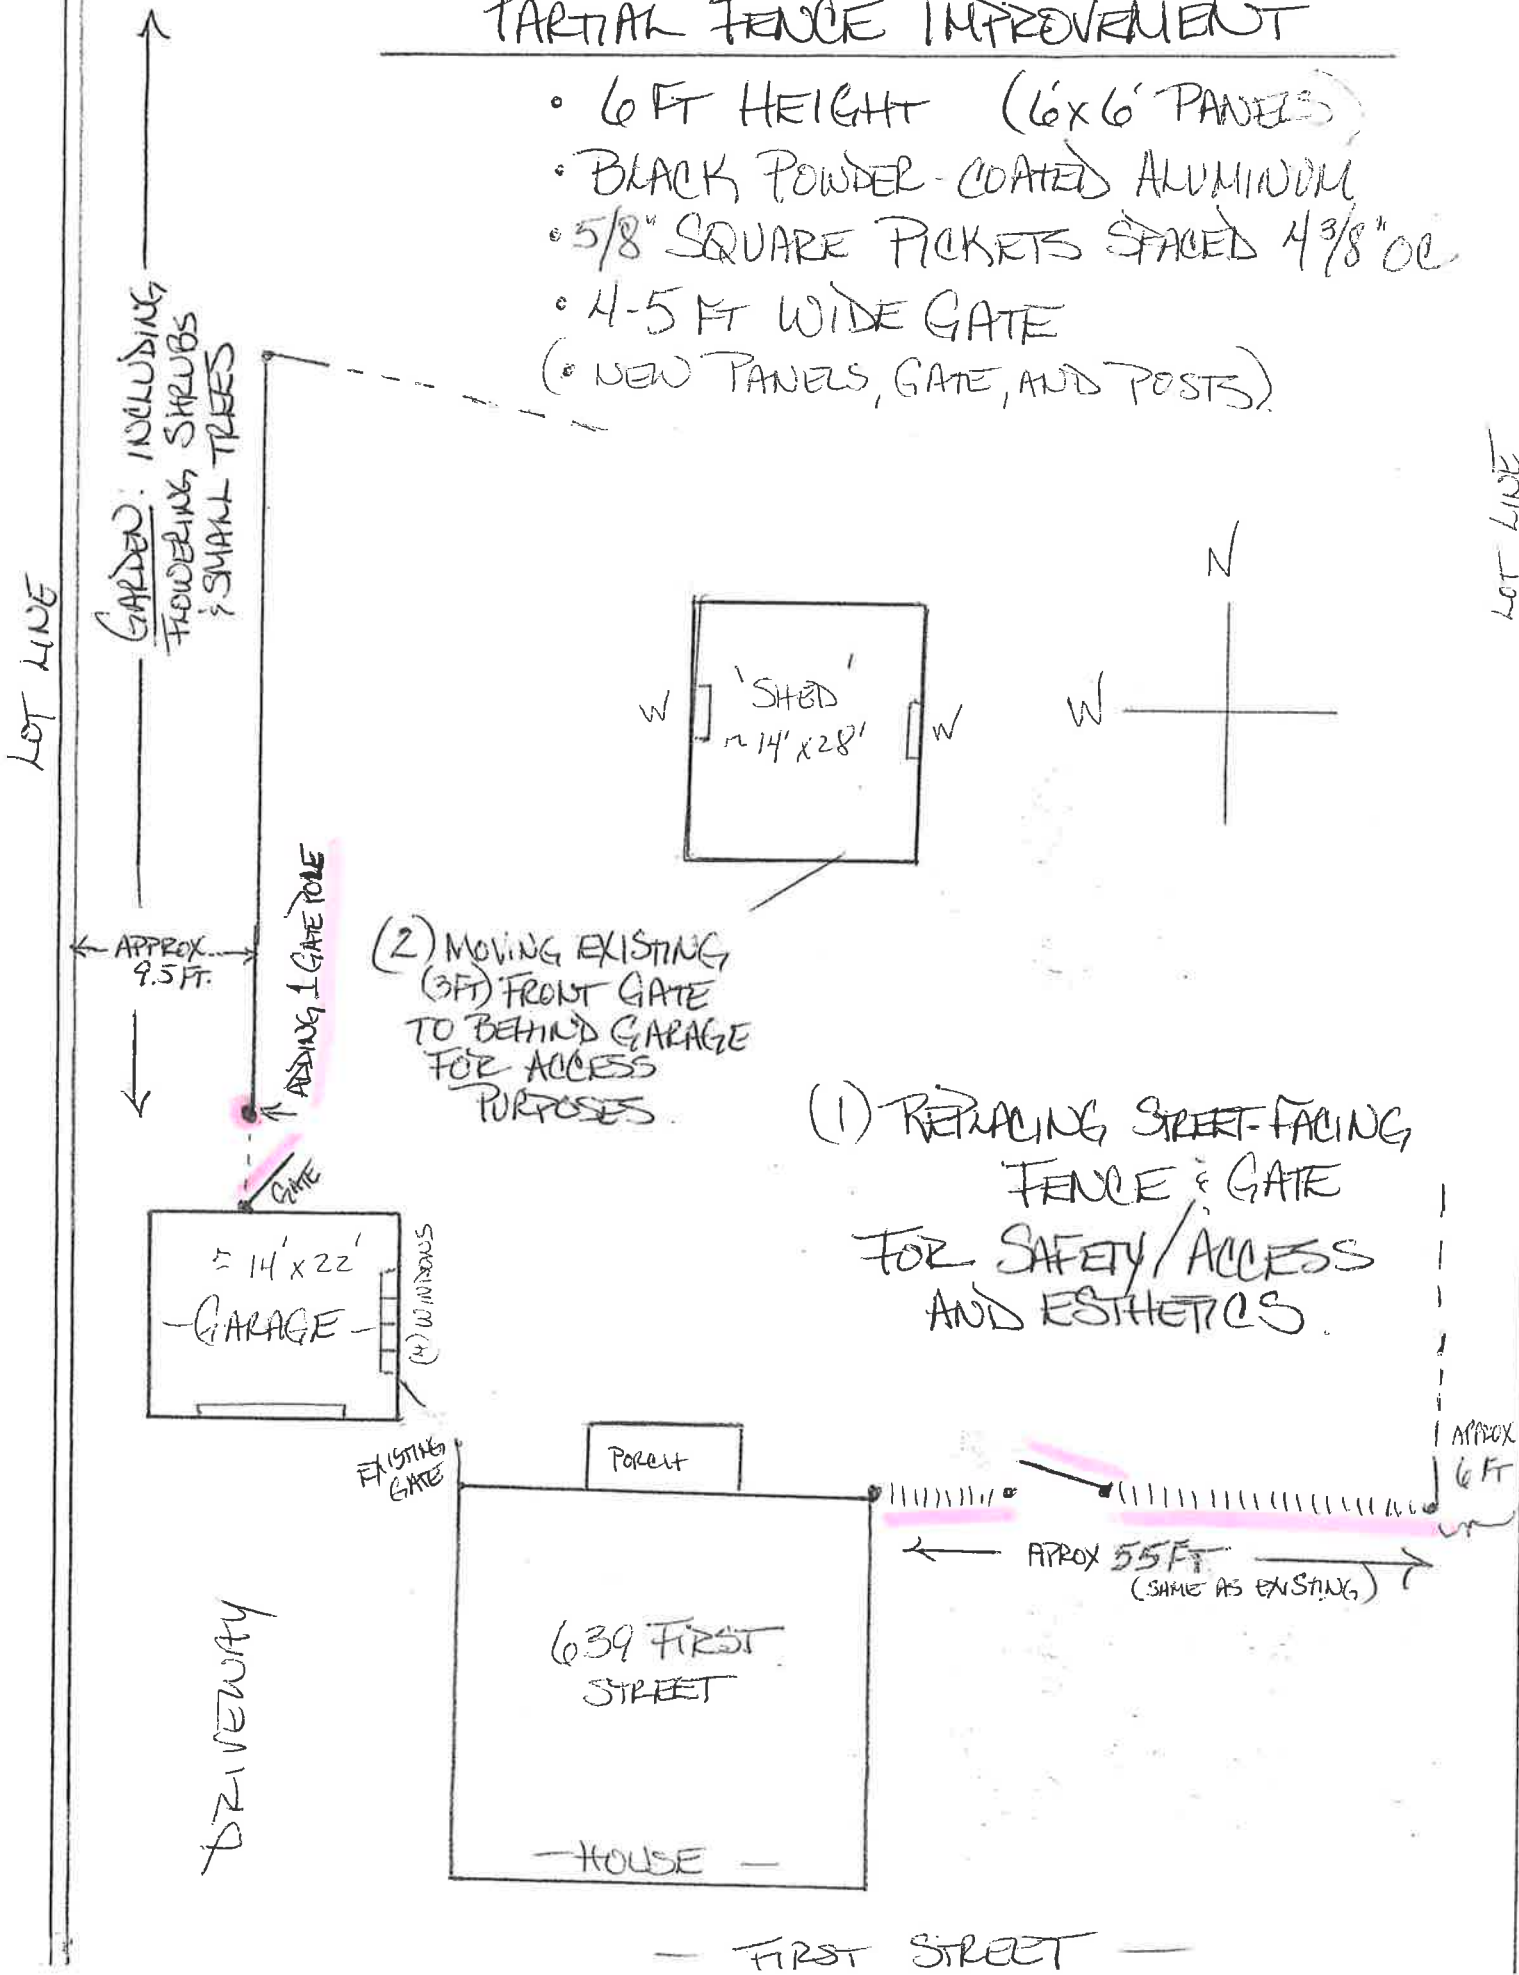 PARTIAL FENCE IMPROVEMENT
• 6 FT HEIGHT (6'x6' PANELS)
• BLACK POWDER-COATED ALUMINUM
• 5/8" SQUARE PICKETS SPACED 4 3/8" OC
• 4-5 FT WIDE GATE
(• NEW PANELS, GATE, AND POSTS)
GARDEN: INCLUDING
FLOWERING SHRUBS
& SMALL TREES
LOT LINE
LOT LINE
N
W
'SHED'
~ 14' x 28'
W
W
APPROX.
9.5 FT.
ADDING 1 GATE POLE
(2) MOVING EXISTING
(3FT) FRONT GATE
TO BEHIND GARAGE
FOR ACCESS
PURPOSES.
(1) REPLACING STREET-FACING
FENCE & GATE
FOR SAFETY/ACCESS
AND ESTHETICS.
GATE
≈ 14' x 22'
- GARAGE -
(4) WINDOWS
EXISTING
GATE
PORCH
APPROX
6 FT
APROX 55 FT.
(SAME AS EXISTING)
639 FIRST
STREET
DRIVEWAY
- HOUSE -
- FIRST STREET -